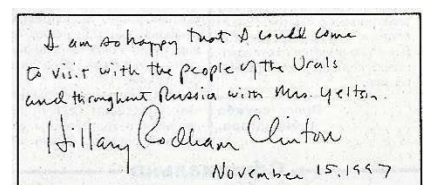 I am so happy that I could come
to visit with the people of the Urals
and throughout Russia with Mrs. Yeltsin.
Hillary Rodham Clinton
November 15, 1997